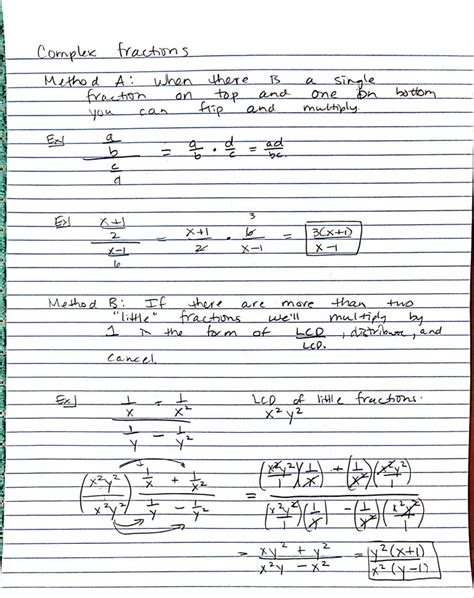 Complex fractions
Method A: When there is a single
fraction on top and one on bottom
you can flip and multiply.
Ex] (a/b)/(c/d) = a/b · d/c = ad/bc
Ex] ((x+1)/2)/((x-1)/6) = (x+1)/2 · 6/(x-1) 3 = 3(x+1)/(x-1)
Method B: If there are more than two
"little" fractions we'll multiply by
1 in the form of LCD/LCD, distribute, and
cancel.
Ex] (1/x + 1/x²)/(1/y - 1/y²) LCD of little fractions.
x²y²
(x²y²/x²y²) (1/x + 1/x²)/(1/y - 1/y²) = ((x²y²/1)(1/x) + (1/x²)(x²y²/1))/((x²y²/1)(1/y) - (1/y²)(x²y²/1))
= (xy² + y²)/(x²y - x²) = y²(x+1)/x²(y-1)